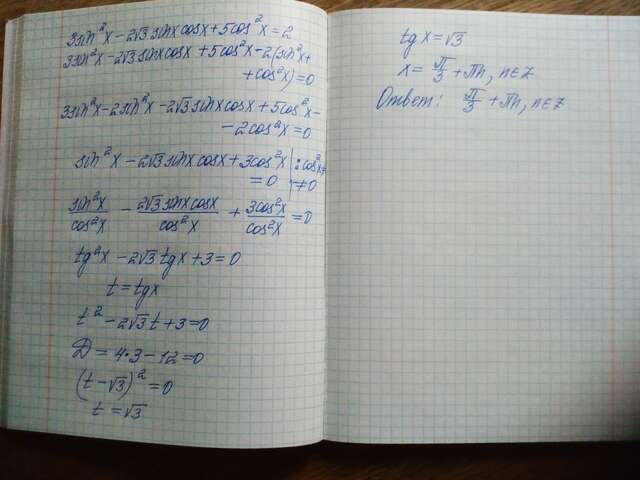 3sin²x - 2√3 sinx cosx + 5cos²x = 2
3sin²x - 2√3 sinx cosx + 5cos²x - 2(sin²x +
+ cos²x) = 0
3sin²x - 2sin²x - 2√3 sinx cosx + 5cos²x -
- 2cos²x = 0
sin²x - 2√3 sinx cosx + 3cos²x | : cos²x ≠
= 0 | ≠ 0
sin²x/cos²x - 2√3 sinx cosx/cos²x + 3cos²x/cos²x = 0
tg²x - 2√3 tgx + 3 = 0
t = tgx
t² - 2√3 t + 3 = 0
D = 4·3 - 12 = 0
(t - √3)² = 0
t = √3
tgx = √3
x = π/3 + πn, n∈Z
Ответ: π/3 + πn, n∈Z